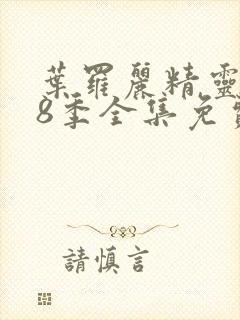 葉羅麗精靈
8季全集免
請慎言